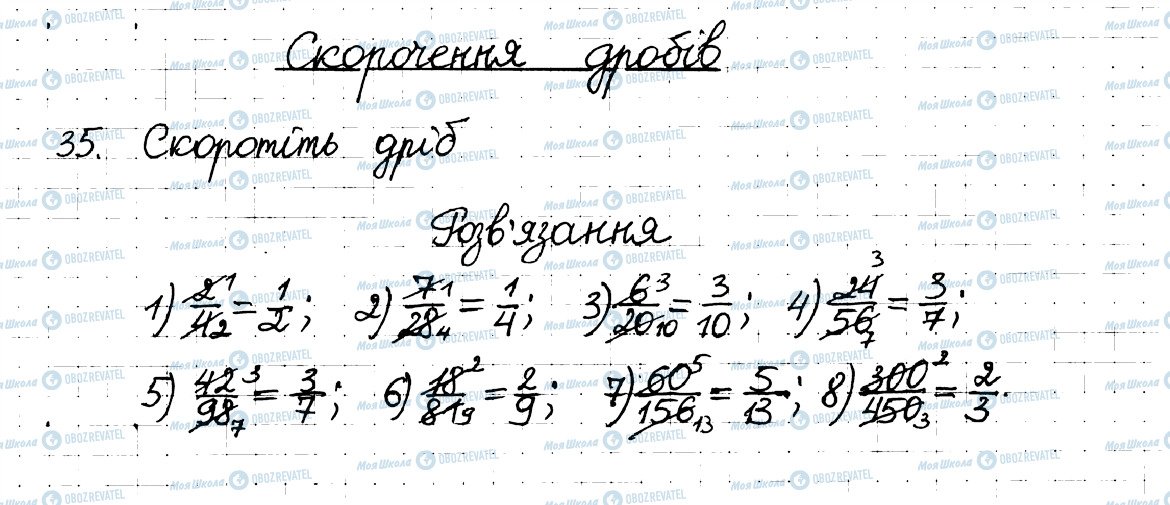 Скорочення дробів
35. Скоротіть дріб
Розв'язання
1) 2/4 = 1/2; 2) 7/28 = 1/4; 3) 6/20 = 3/10; 4) 24/56 = 3/7;
5) 42/98 = 3/7; 6) 18/81 = 2/9; 7) 60/156 = 5/13; 8) 300/450 = 2/3.